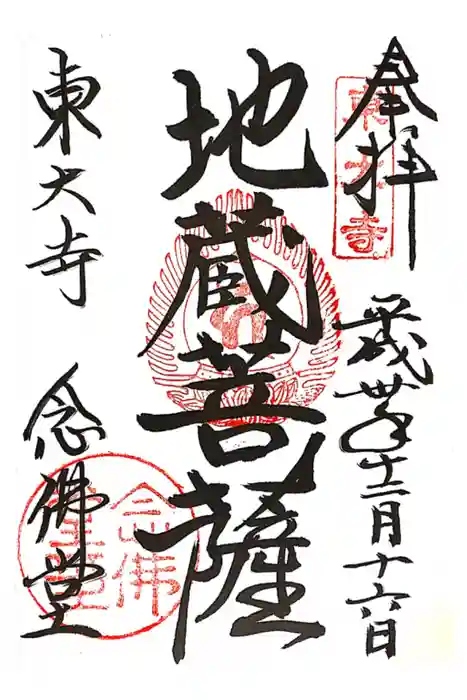 奉拝
東大寺
平成丗年十二月十六日
地蔵菩薩
東大寺 念佛堂
念佛堂